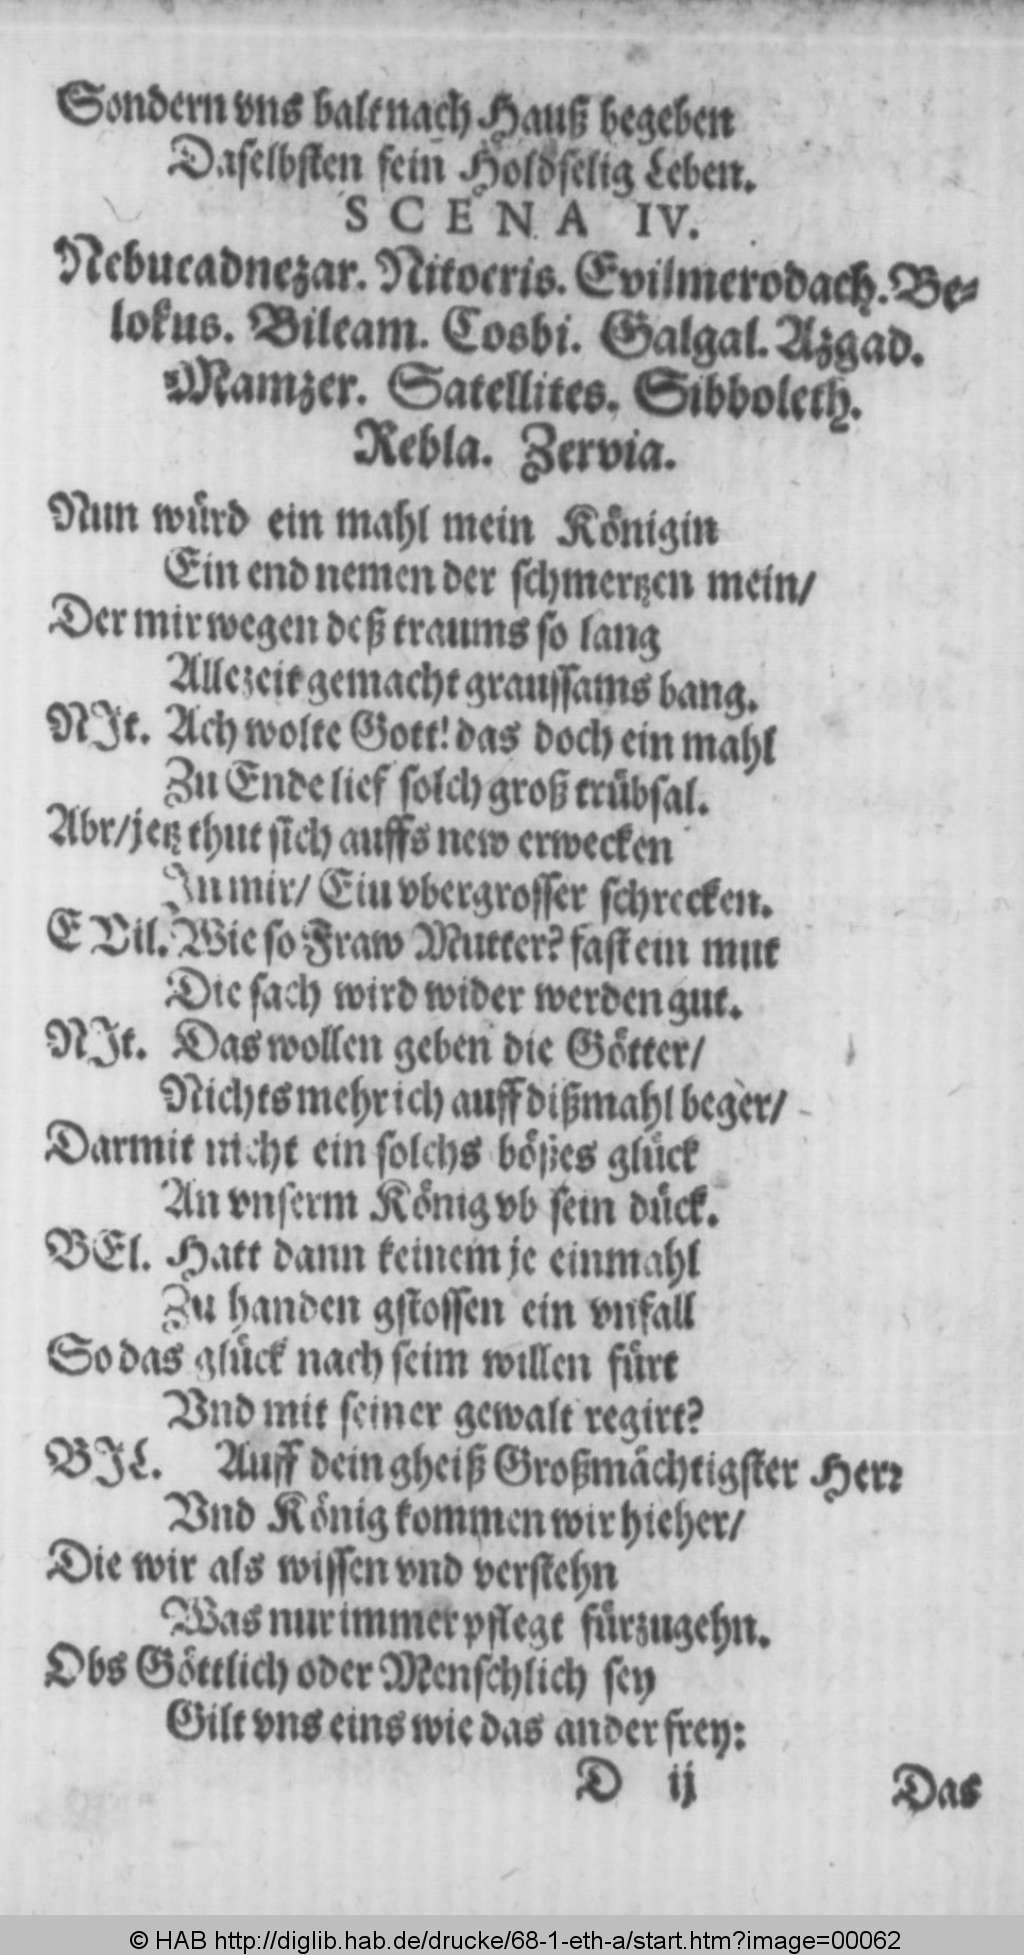 Sondern vns balt nach Hauß begeben
Daselbsten sein Holdselig Leben.
SCENA IV.
Nebucadnezar. Nitocris. Evilmerodach. Be-
lokus. Bileam. Cosbi. Galgal. Azgad.
Mamzer. Satellites. Sibboleth.
Rebla. Zervia.
Nun würd ein mahl mein Königin
Ein end nemen der schmertzen mein/
Der mir wegen deß traums so lang
Allezeit gemacht graussams bang.
NIt. Ach wolte Gott! das doch ein mahl
Zu Ende lief solch groß trübsal.
Abr/ jetz thut sich auffs new erwecken
In mir/ Ein vbergrosser schrecken.
EVil. Wie so Fraw Mutter? fast ein mut
Die sach wird wider werden gut.
NIt. Das wollen geben die Götter/
Nichts mehr ich auff dißmahl beger/
Darmit nicht ein solchs bößes glück
An vnserm König vb sein dück.
BEl. Hatt dann keinem je einmahl
Zu handen gstossen ein vnfall
So das glück nach seim willen fürt
Vnd mit seiner gewalt regirt?
BIL. Auff dein gheiß Großmächtigster Herr
Vnd König kommen wir hieher/
Die wir als wissen vnd verstehn
Was nur immer pflegt fürzugehn.
Obs Göttlich oder Menschlich sey
Gilt vns eins wie das ander frey:
D ij Das
© HAB http://diglib.hab.de/drucke/68-1-eth-a/start.htm?image=00062